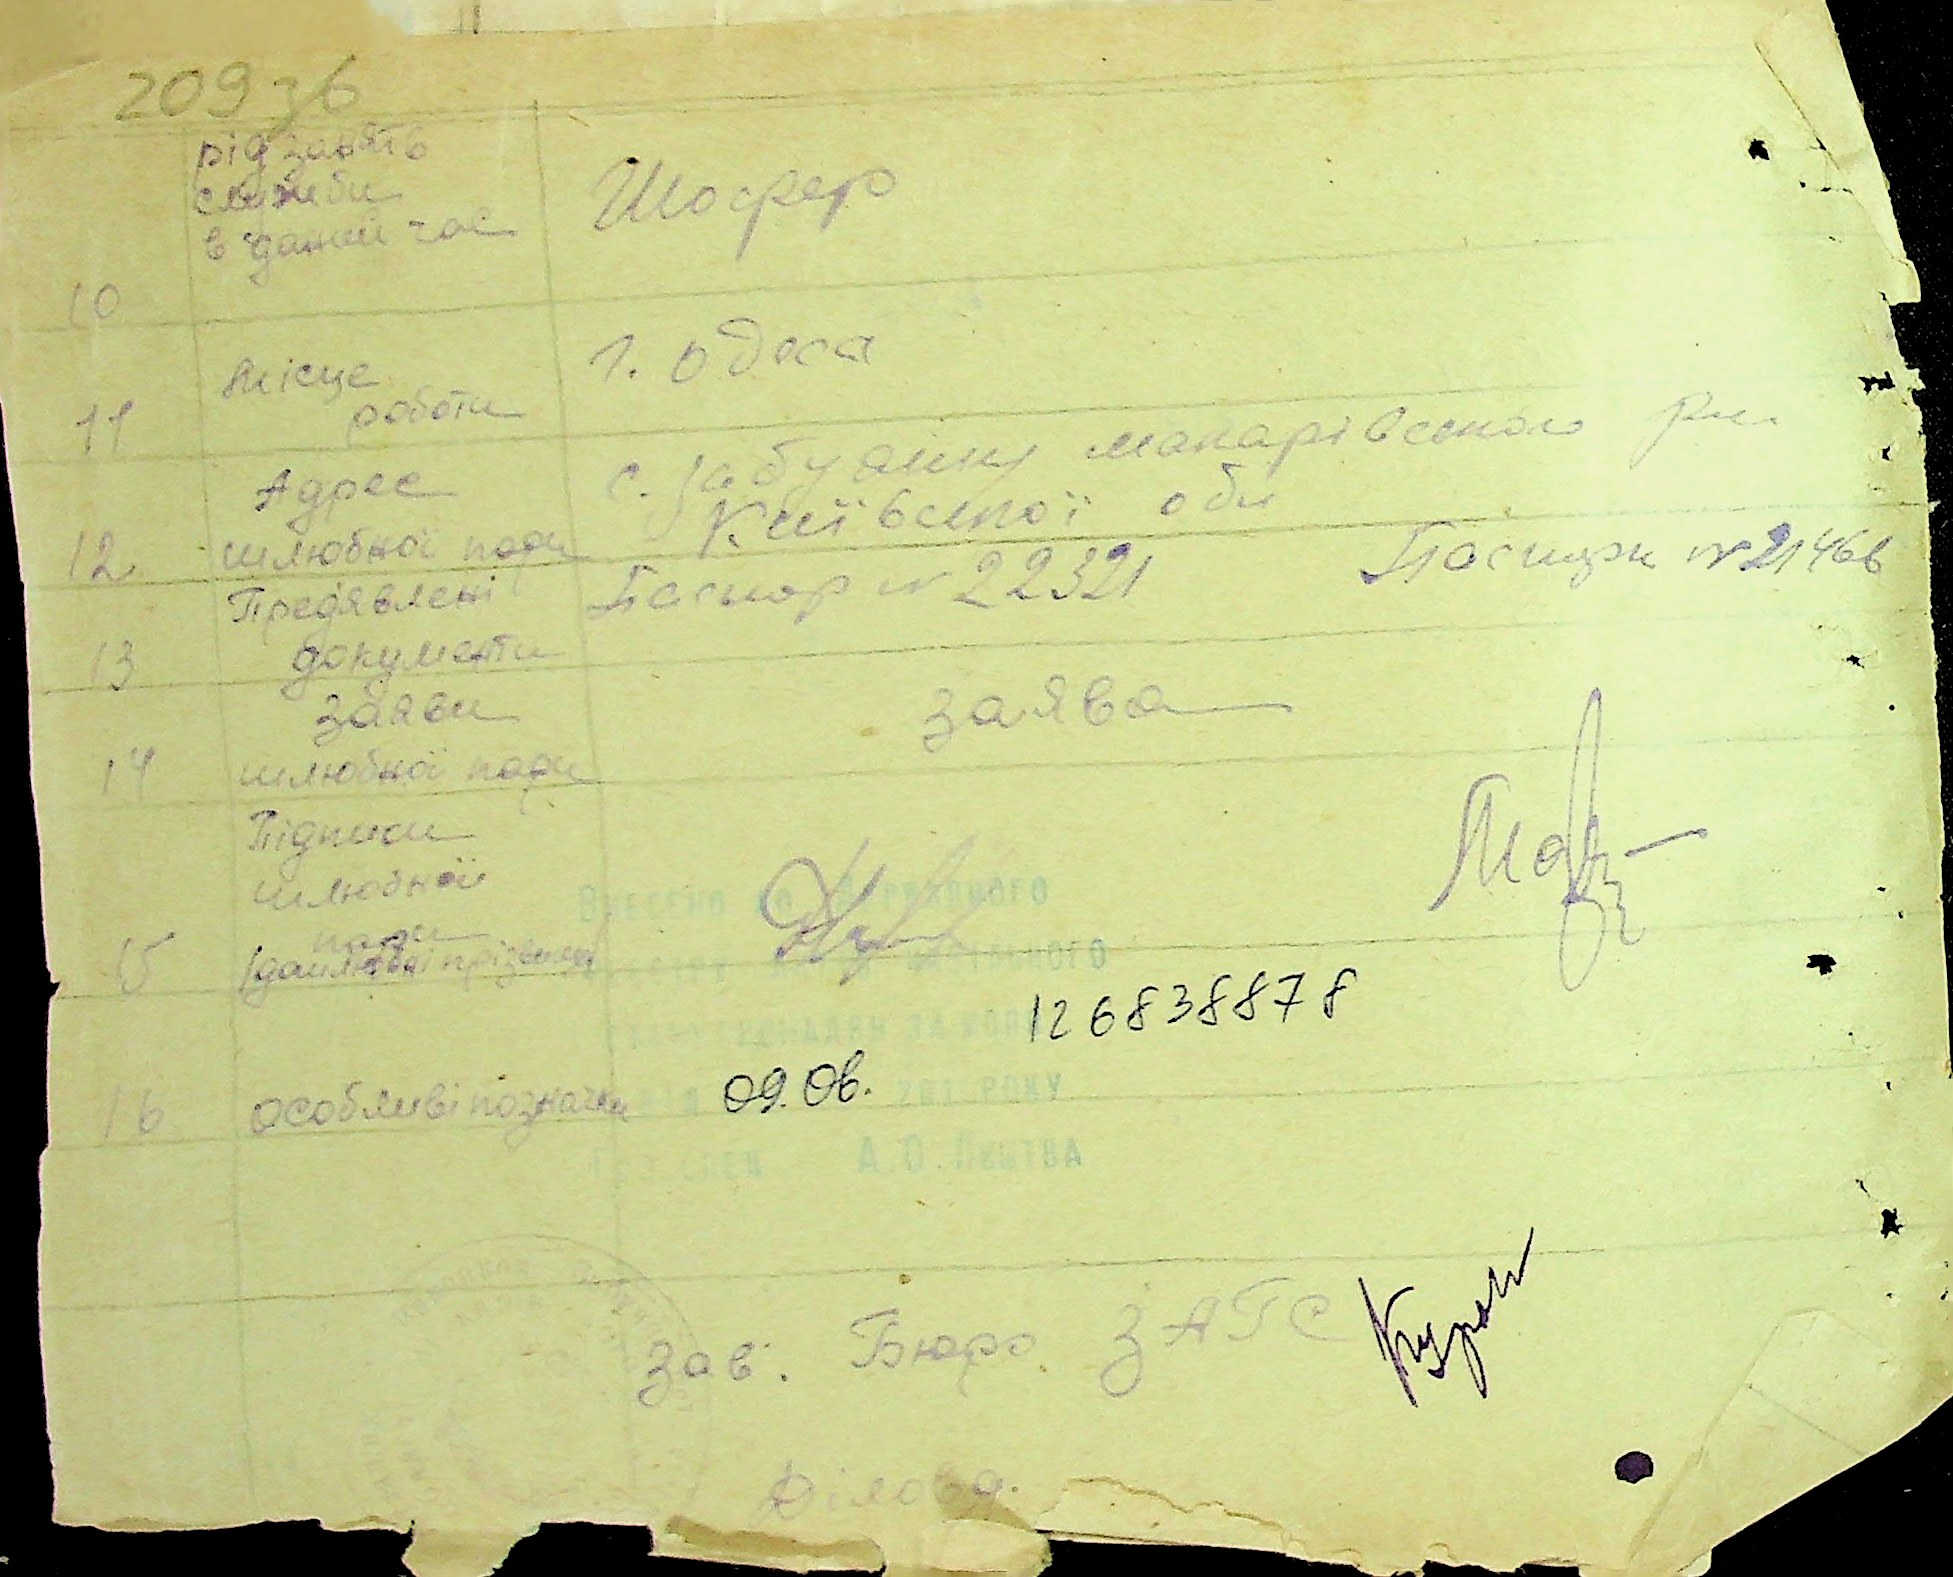 209зб
рід занять
служби
в даний час
Шофер
10
Місце
роботи
г. Одеса
11
Адрес
шлюбної пари
с. Забуянну макарівського рн.
Київської обл
12
Предявлені
документи
Паспор № 22321
Паспорт № 21466
13
Заяви
шлюбної пари
заява
14
Підписи
шлюбної
пари
15
Дошлюбні прізвища
126838878
16
особливі позначки
09.06.
Внесено до Державного
за воло
201 року
А.О. Пиштва
Зав. Бюро ЗАГС
Діловод.